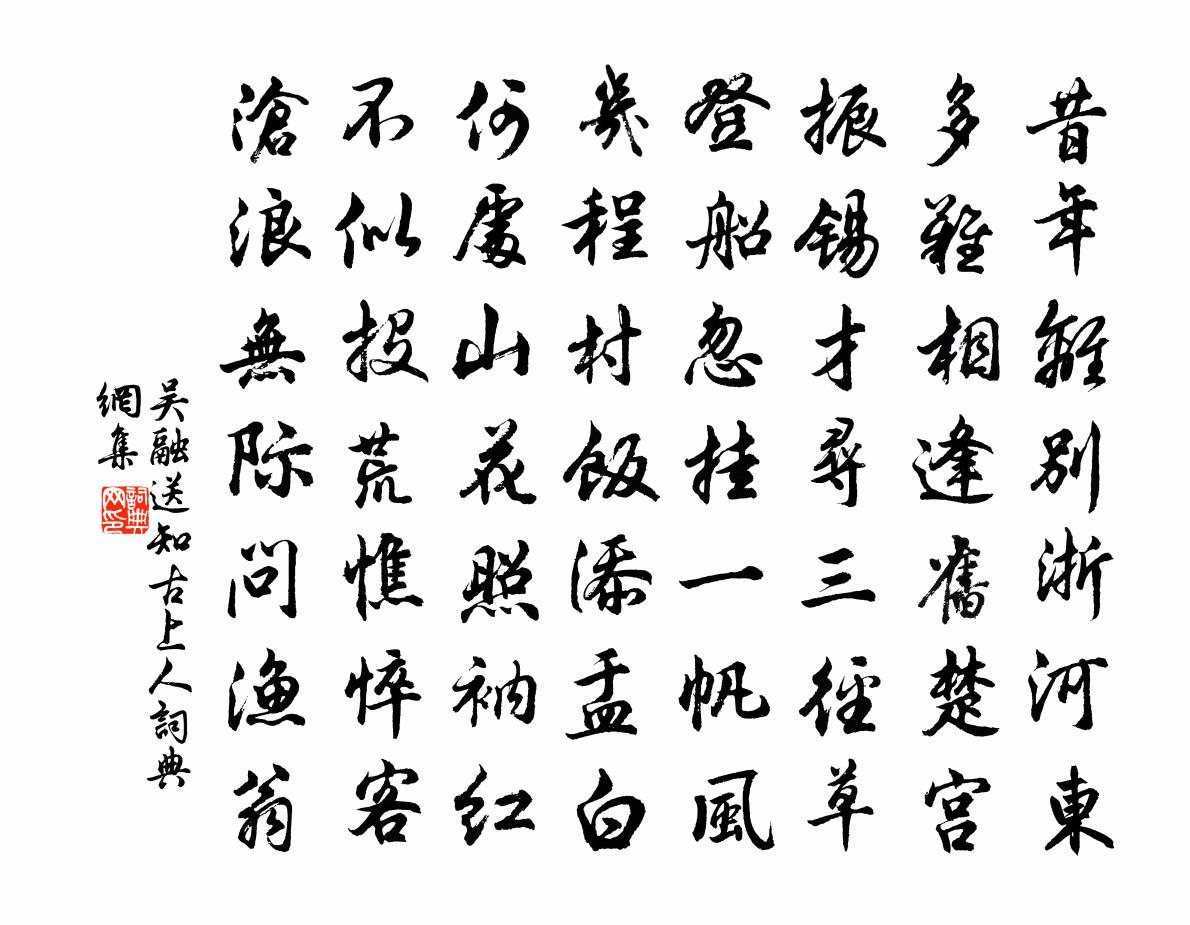 昔年離別浙河東
多難相逢舊楚宮
振錫才尋三徑草
登船忽挂一帆風
幾程村飯添盂白
何處山花照衲紅
不似投荒憔悴客
滄浪無際問漁翁
吴融送知古上人詞典
網集
詞典网印